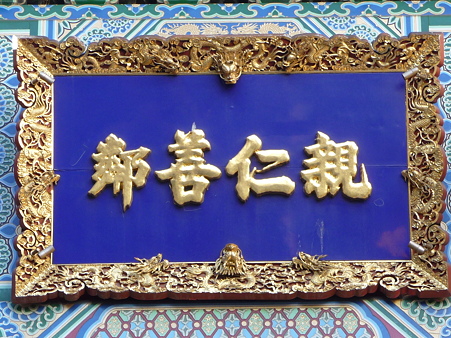 親仁善鄰